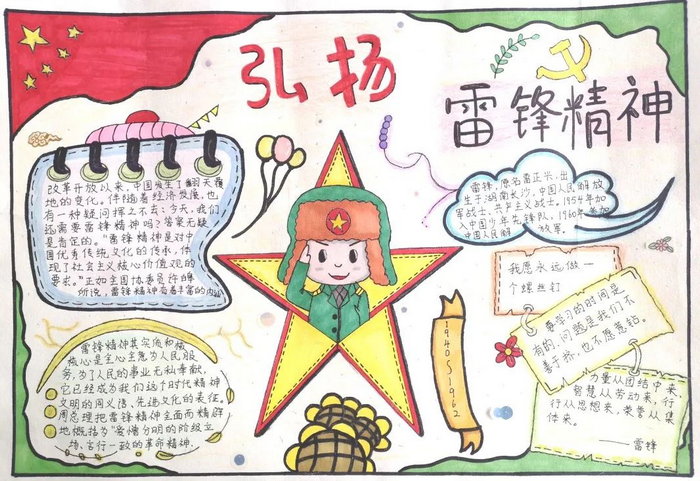 弘扬
雷锋精神
改革开放以来,中国发生了翻天覆
地的变化。伴随着经济发展,也
有一种疑问挥之不去:今天,我们
还需要雷锋精神吗?答案无疑
是肯定的。“雷锋精神是对中
国优秀传统文化的传承,体
现了社会主义核心价值观的
要求。”正如全国协委员
所说,雷锋精神有着丰富的内涵
雷锋,原名雷正兴,出
生于湖南长沙,中国人民解放
军战士,共产主义战士。1954年加
入中国少年先锋队,1960年参加
中国人民解放军。
我愿永远做一
个螺丝钉
要学习的时间是
有的,问题是我们不
善于挤,也不愿意钻。
力量从团结中来,
智慧从劳动来,行
行从思想来,荣誉从集
体来。
——雷锋
1940S1962
雷锋精神其实质和核
核心是全心全意为人民服
务,为了人民的事业无私奉献,
它已经成为我们这个时代精神
文明的同义语、先进文化的表征。
周总理把雷锋精神全面而精辟
地概括为“爱憎分明的阶级立
场、言行一致的革命精神,